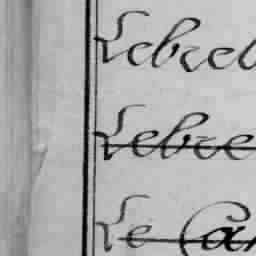 Lebreto
Lebre
Le Ca